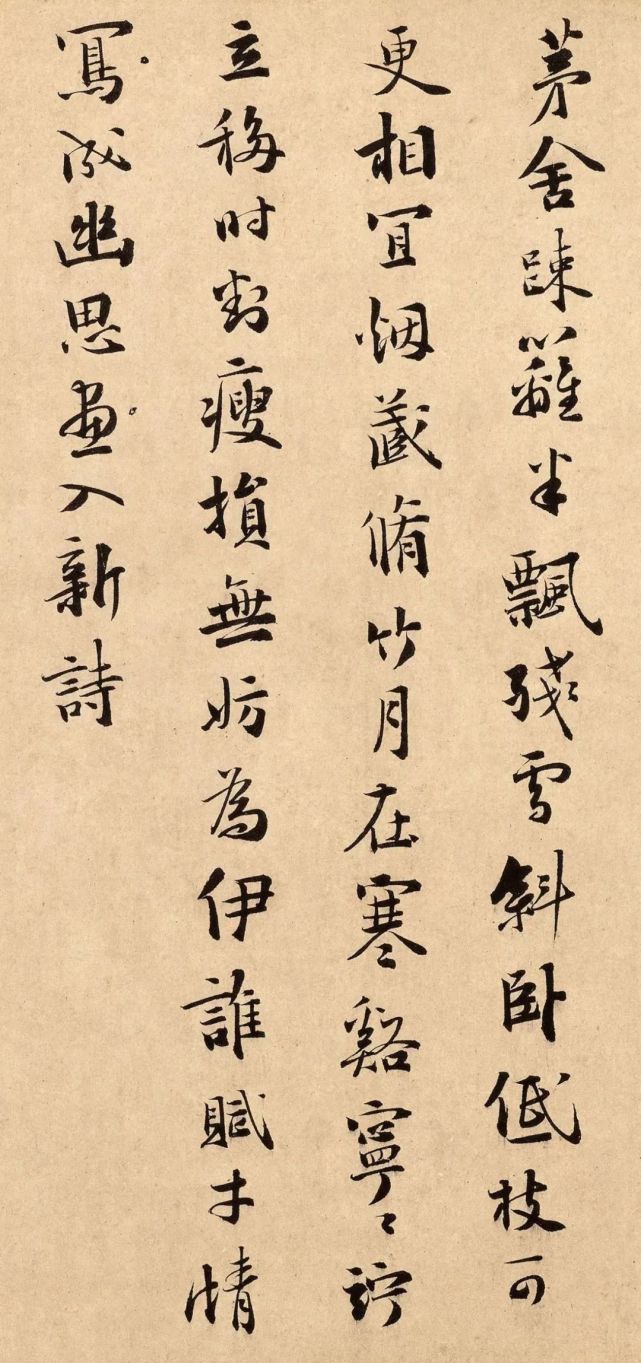 茅舍疎籬半飄殘雪斜卧低枝可
更相宜烟藏脩竹月在寒谿寧寧竚
立移時對瘦損無妨為伊誰賦才情
寫成幽思畫入新詩